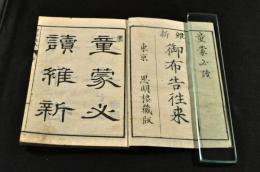 童蒙必讀
維新
御布告往来
東京 思明樓藏版
童蒙必
讀維新